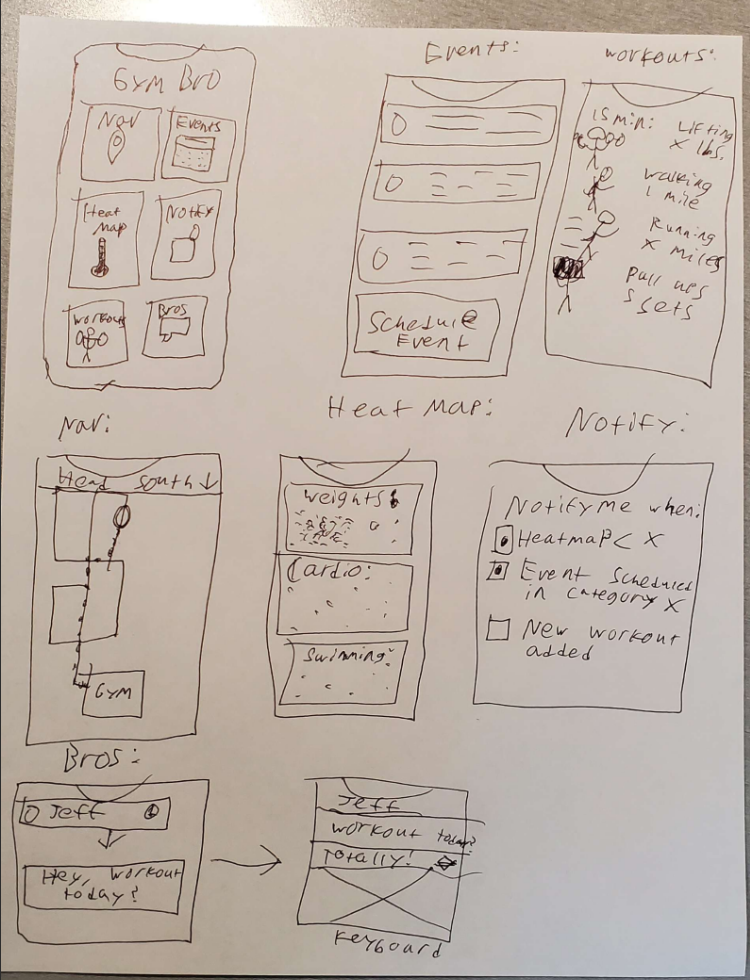 Gym Bro
Nav
Events
Heat
Map
Notify
Workouts
Bros
Events:
Schedule
Event
Workouts:
15 min: Lifting
X lbs.
Walking
1 mile
Running
X miles
Pull ups
5 sets
Nav:
Head south ↓
Gym
Heat Map:
Weights:
Cardio:
Swimming:
Notify:
Notify me when:
Heatmap < X
Event Scheduled
in category X
New workout
added
Bros:
Jeff
Hey, workout
today?
Jeff
Workout today?
Totally!
Keyboard